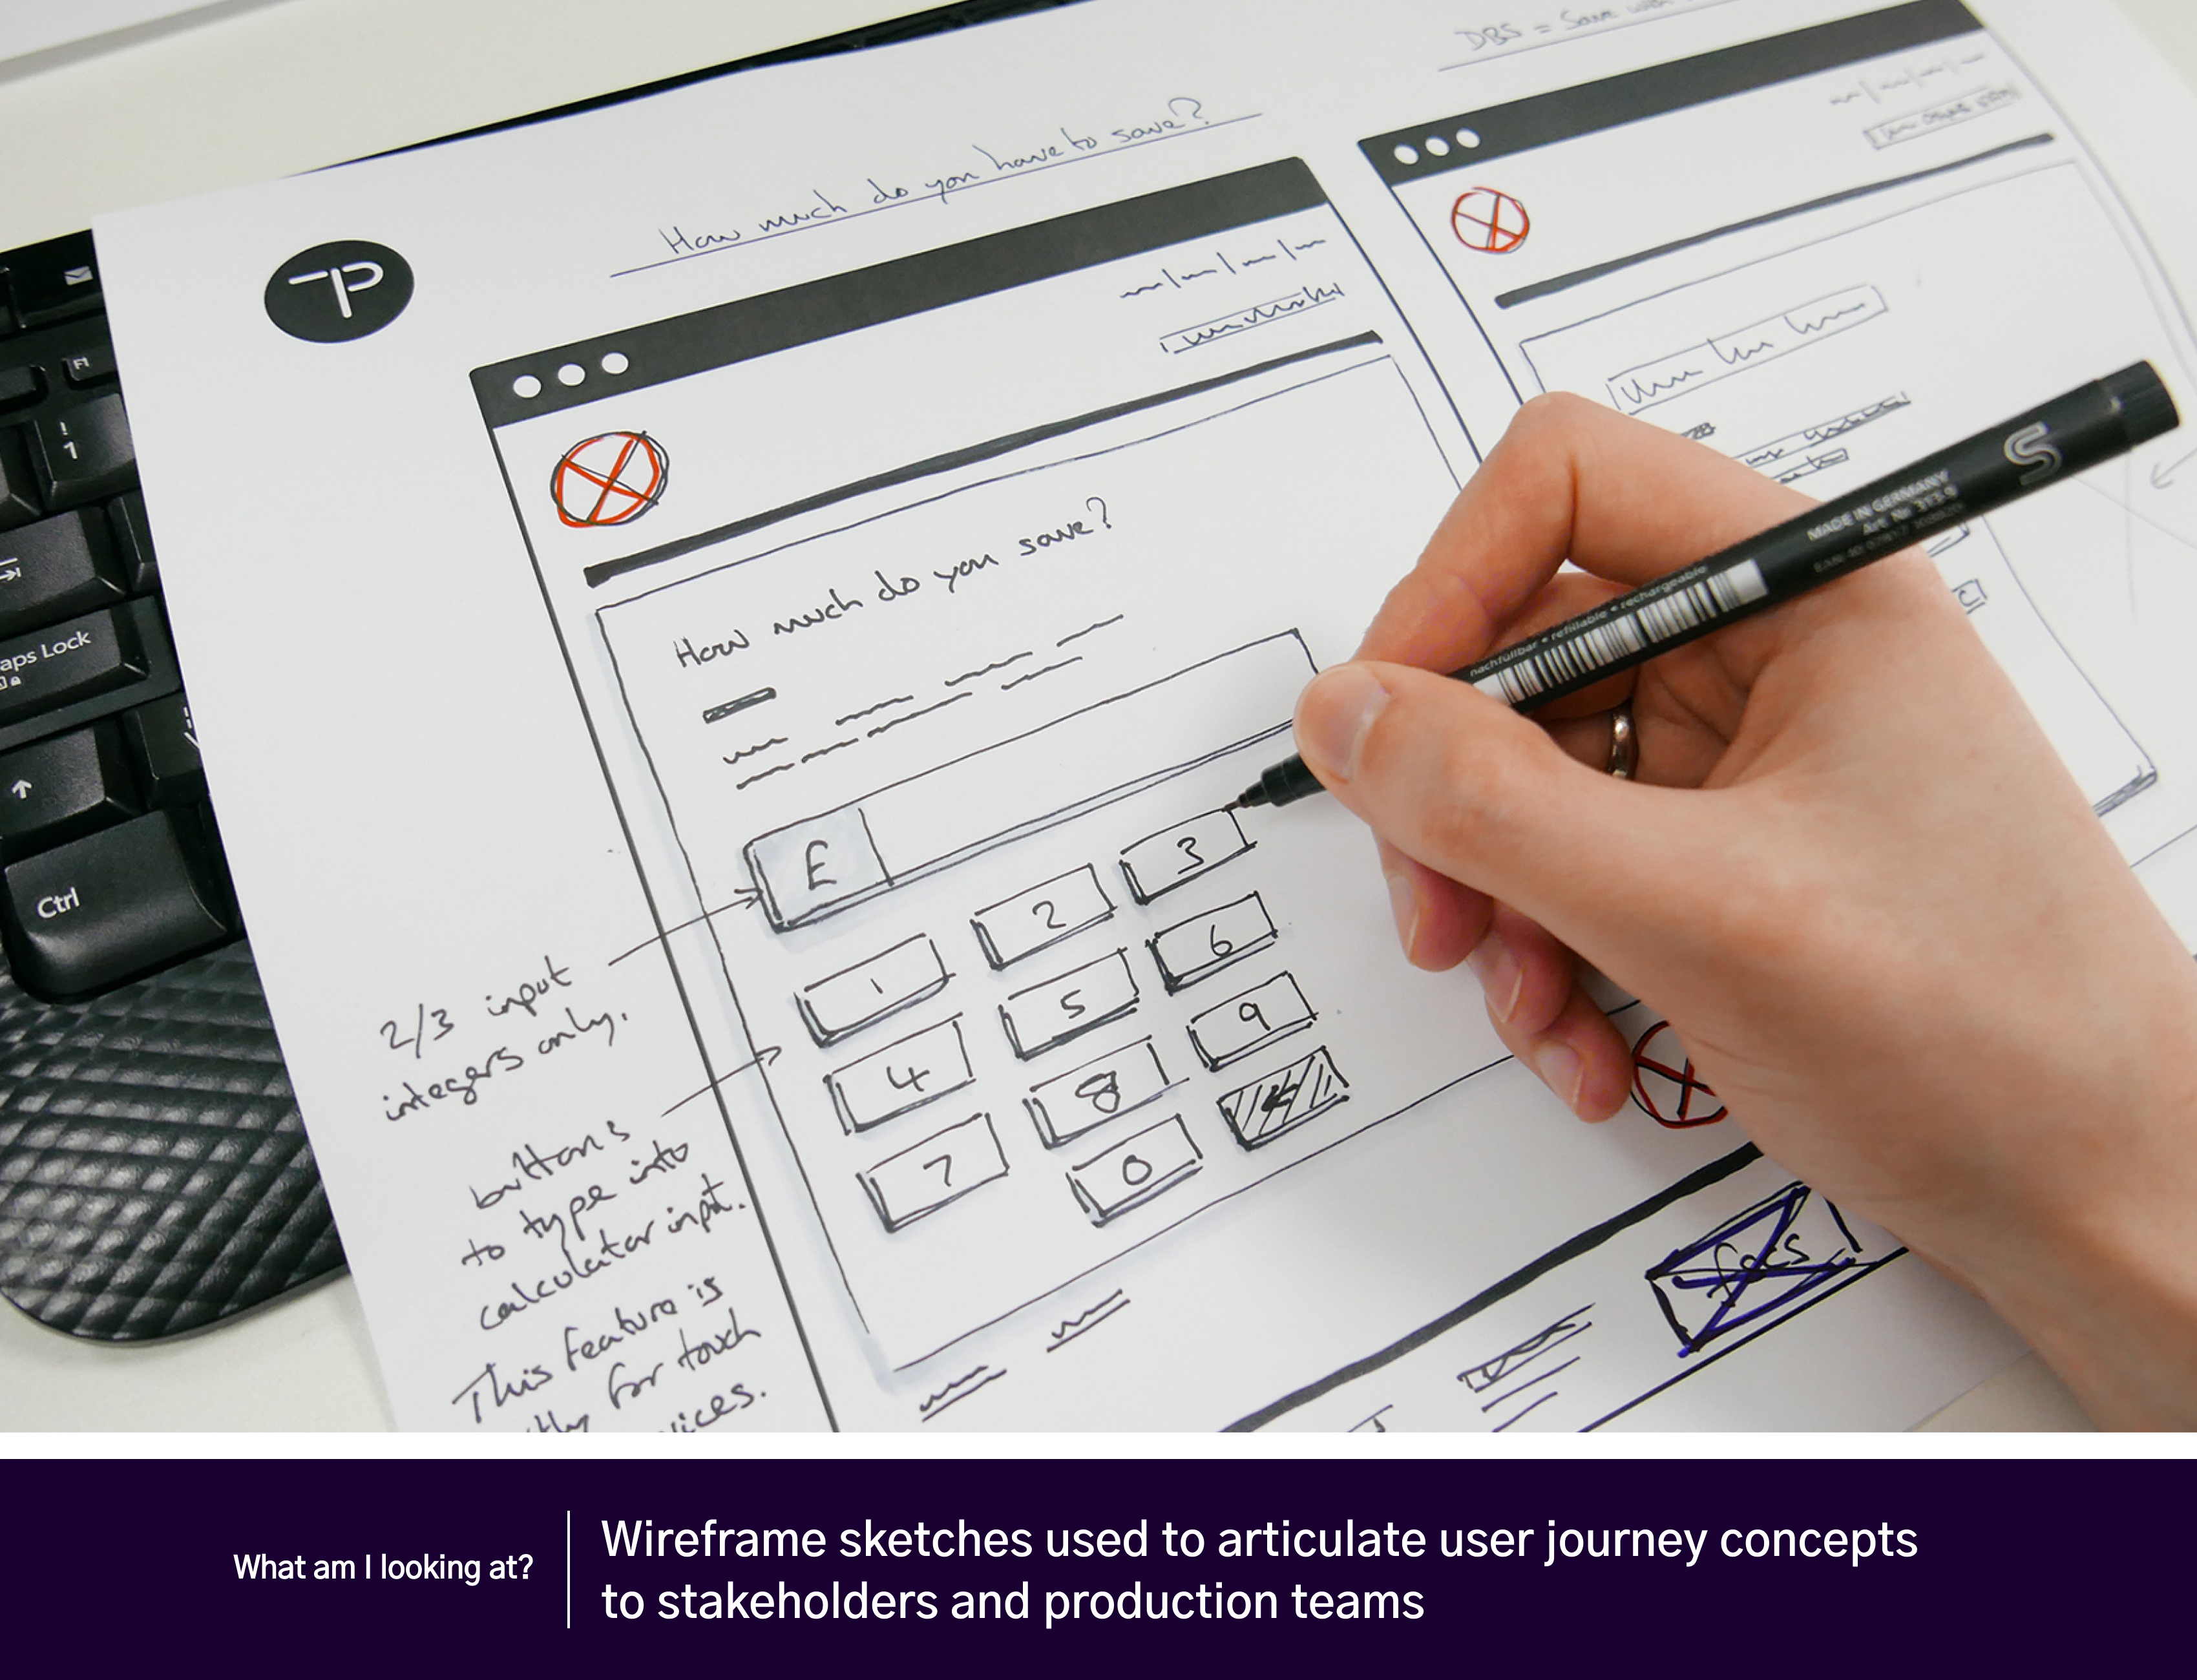 DBS = Save with
How much do you have to save?
TP
How much do you save?
£
1
2
3
4
5
6
7
8
9
0
2/3 input
integers only.
buttons
to type into
calculator input.
This feature is
for touch
focs
F1
!
1
aps Lock
Ctrl
S
MADE IN GERMANY
Art. Nr. 3
nachfüllbar • refillable • rechargeable
What am I looking at?
Wireframe sketches used to articulate user journey concepts
to stakeholders and production teams